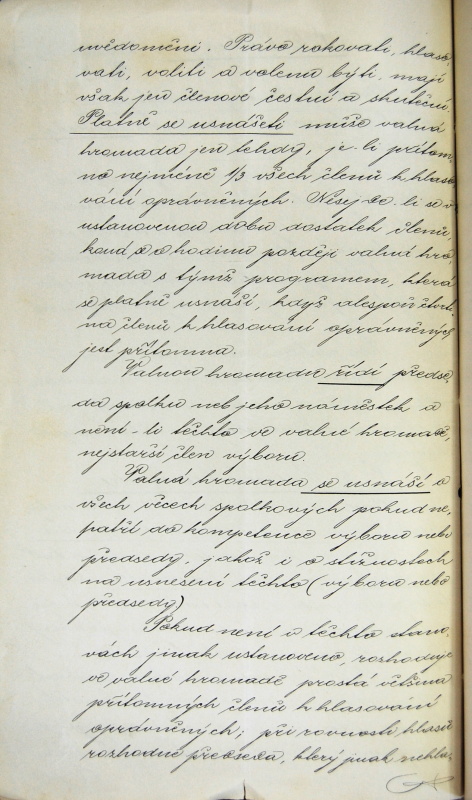 uvědoměni. Právo rokovati, hlaso-
vati, voliti a volenu býti, mají
však jen členové čestní a skuteční
Platně se usnášeti může valná
hromada jen tehdy, je-li přítom-
no nejméně 1/3 všech členů k hlaso-
vání oprávněných. Nesejde-li se v
ustanovenou dobu dostatek členů,
koná se o hodinu později valná hro-
mada s týmž programem, která
se platně usnáší, když alespoň čtvrti-
na členů k hlasování oprávněných
jest přítomna.
Valnou hromadu řídí předse-
da spolku neb jeho náměstek a
není-li těchto ve valné hromadě,
nejstarší člen výboru.
Valná hromada se usnáší o
všech věcech spolkových pokud ne-
patří do kompetence výboru nebo
předsedy, jakož i o stížnostech
na usnesení těchto (výboru nebo
předsedy)
Pokud není v těchto stano-
vách jinak ustanoveno, rozhoduje
ve valné hromadě prostá většina
přítomných členů k hlasování
oprávněných; při rovnosti hlasů
rozhodne předseda, který jinak nehla-